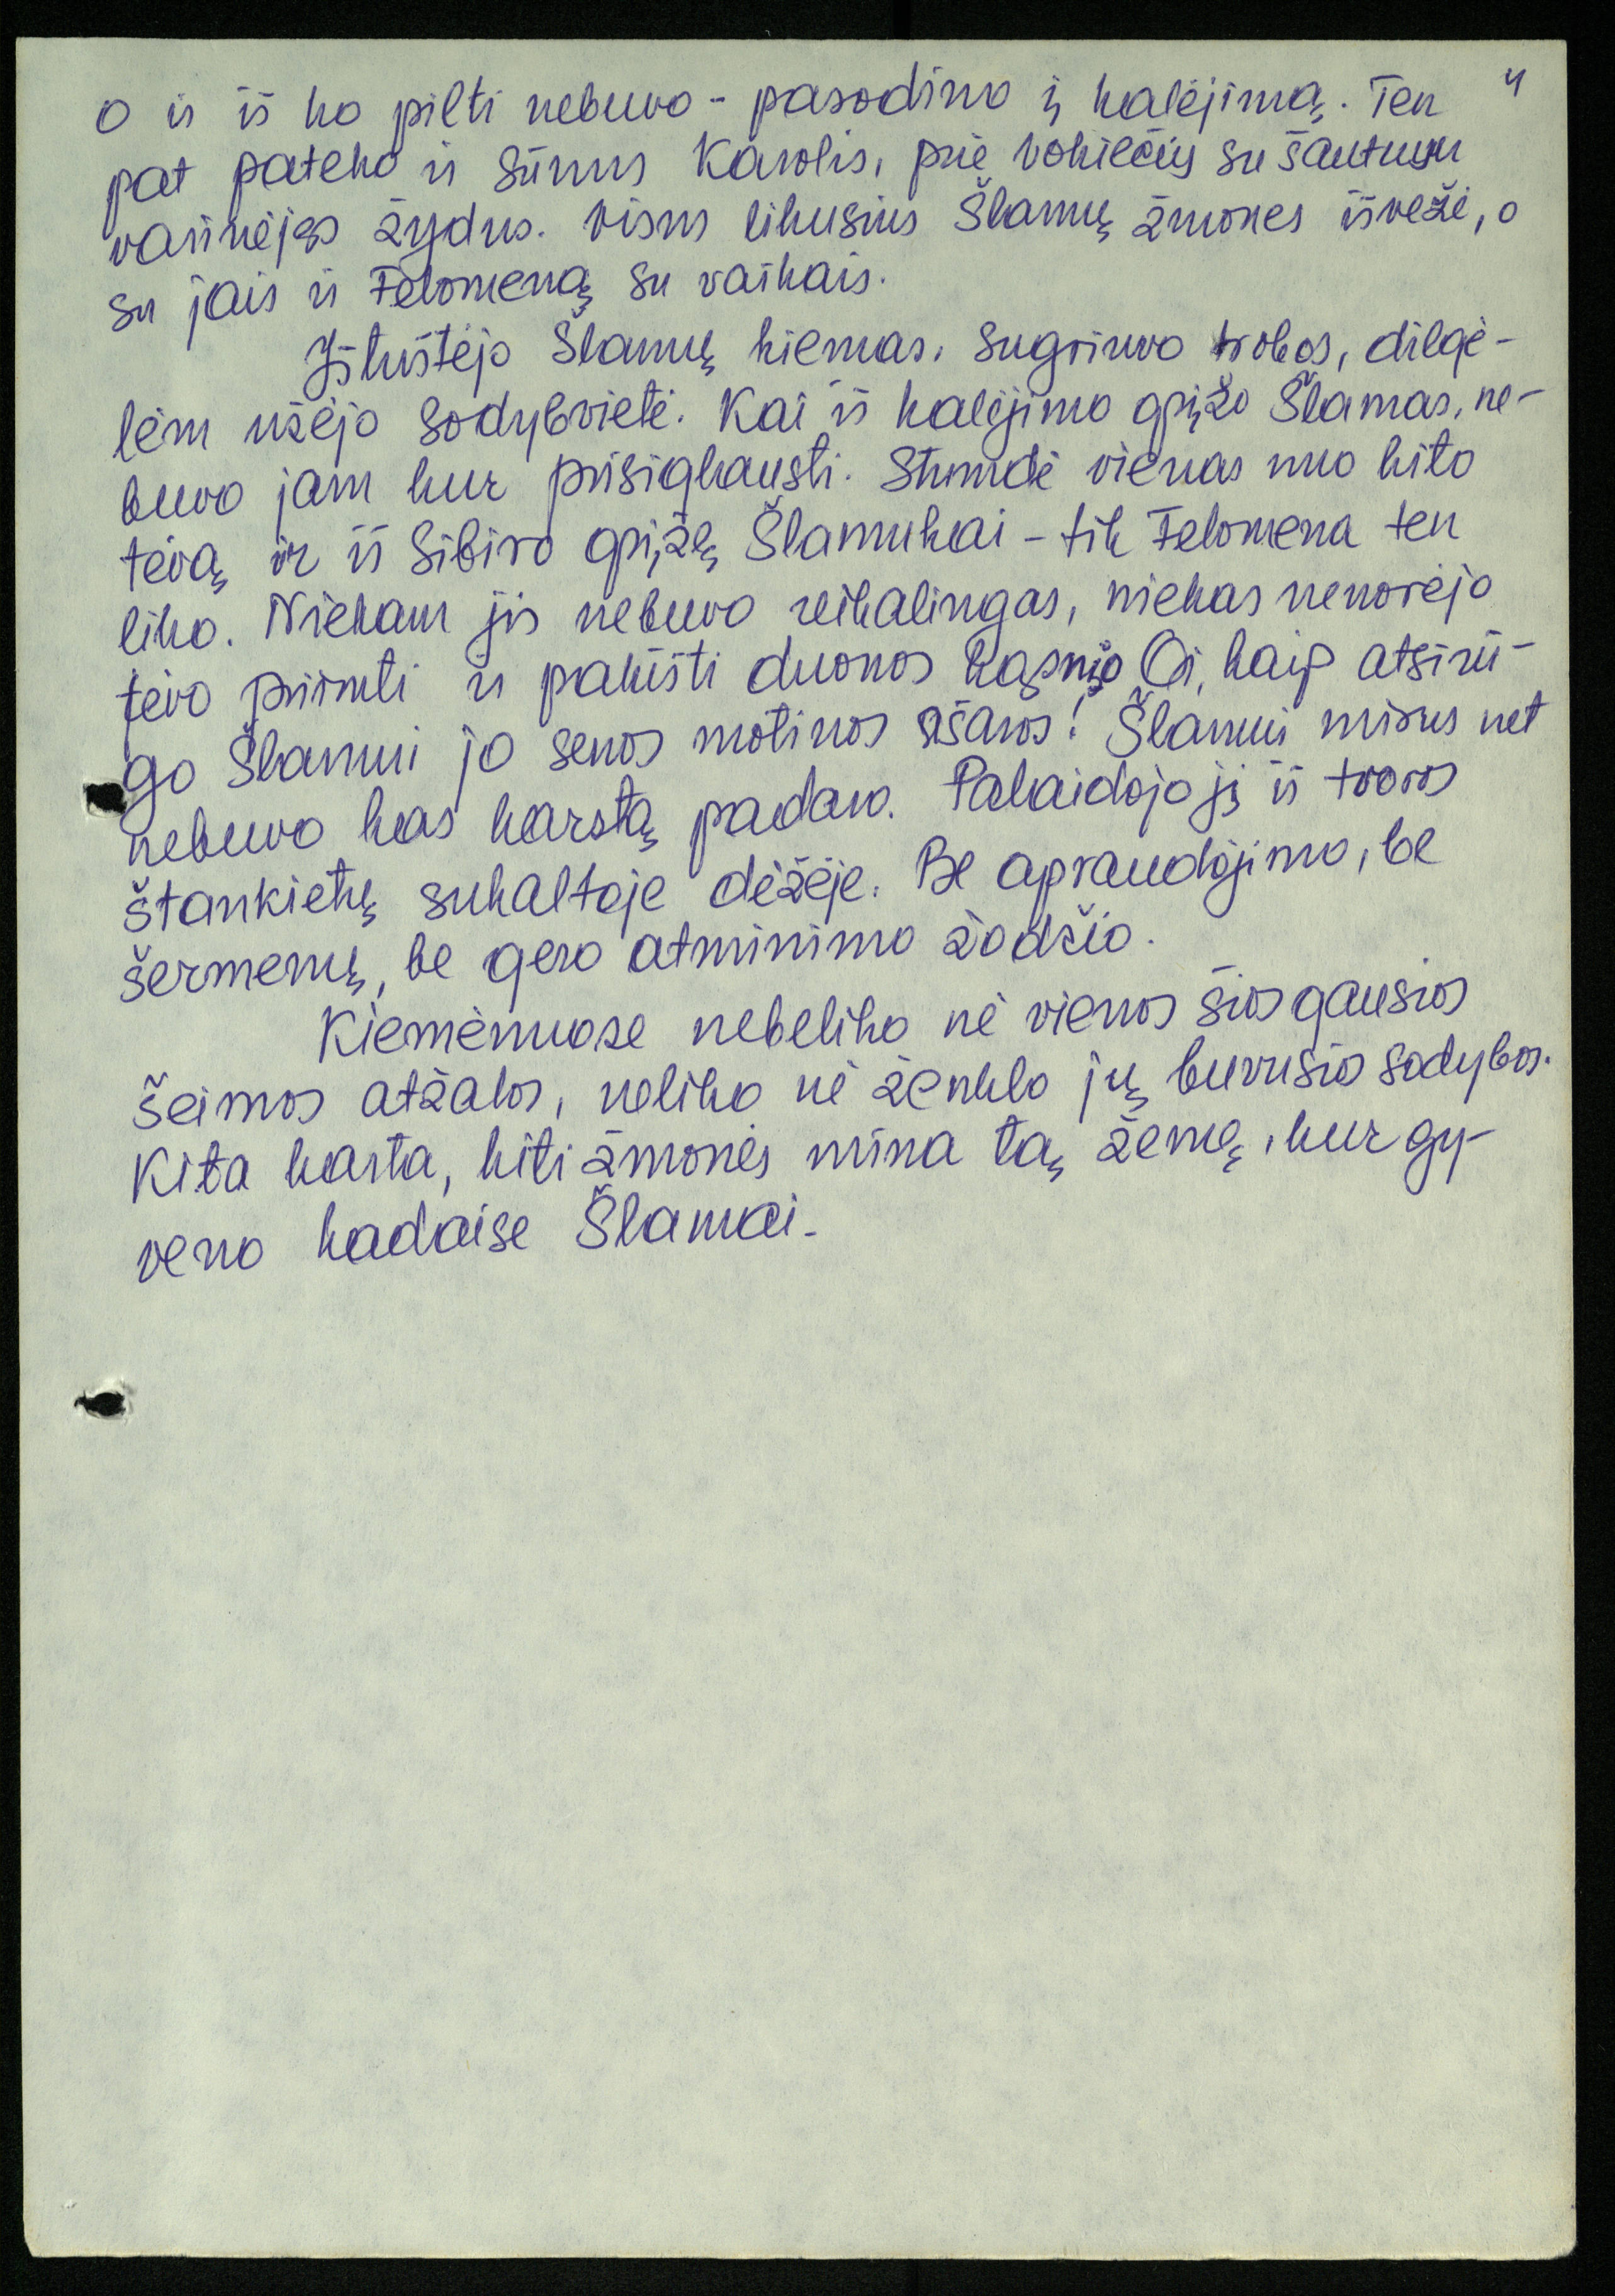 4
o ir iš ko pilti nebuvo - pasodino į kalėjimą. Ten
pat pateko ir sūnus Karolis, prie vokiečių su šautuvu
varinėjęs žydus. Visus likusius Šlamų žmones išvežė, o
su jais ir Felomeną su vaikais.
Ištuštėjo Šlamų kiemas, sugriuvo trobos, dilgė-
lėm užėjo sodybvietė. Kai iš kalėjimo grįžo Šlamas, ne-
buvo jam kur prisiglausti. Stumdė vienas nuo kito
tėvą ir iš Sibiro grįžę Šlamukai - tik Felomena ten
liko. Niekam jis nebuvo reikalingas, niekas nenorėjo
tėvo priimti ir pakišti duonos kąsnio. Oi, kaip atsirū-
go Šlamui jo senos motinos ašaros! Šlamui mirus net
nebuvo kas karstą padaro. Palaidojo jį iš tvoros
štankietų sukaltoje dėžėje. Be apraudojimo, be
šermenų, be gero atminimo žodžio.
Kiemėnuose nebeliko nė vienos šios gausios
šeimos atžalos, neliko nė ženklo jų buvusios sodybos.
Kita karta, kiti žmonės mina tą žemę, kur gy-
veno kadaise Šlamai.